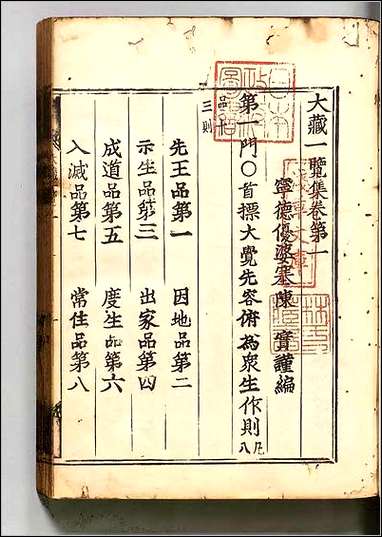 大藏一覽集卷第一
寧德優婆塞陳 實謹編
第一門○首標大覺先容俯為衆生作則凡八
三則
先王品第一 因地品第二
示生品第三 出家品第四
成道品第五 度生品第六
入滅品第七 常住品第八
日本政府圖書
淺草文庫
林氏藏書